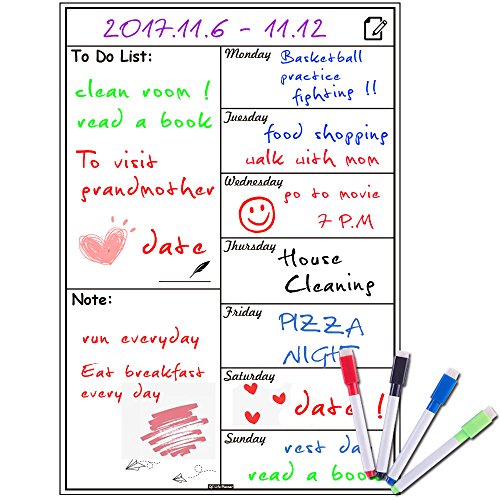 2017.11.6 - 11.12
To Do List:
clean room !
read a book
To visit
grandmother
date
Note:
run everyday
Eat breakfast
every day
Monday
Basketball
practice
fighting !!
Tuesday
food shopping
walk with mom
Wednesday
go to movie
7 P.M
Thursday
House
Cleaning
Friday
PIZZA
NIGHT
Saturday
date !
Sunday
rest da
read a boo